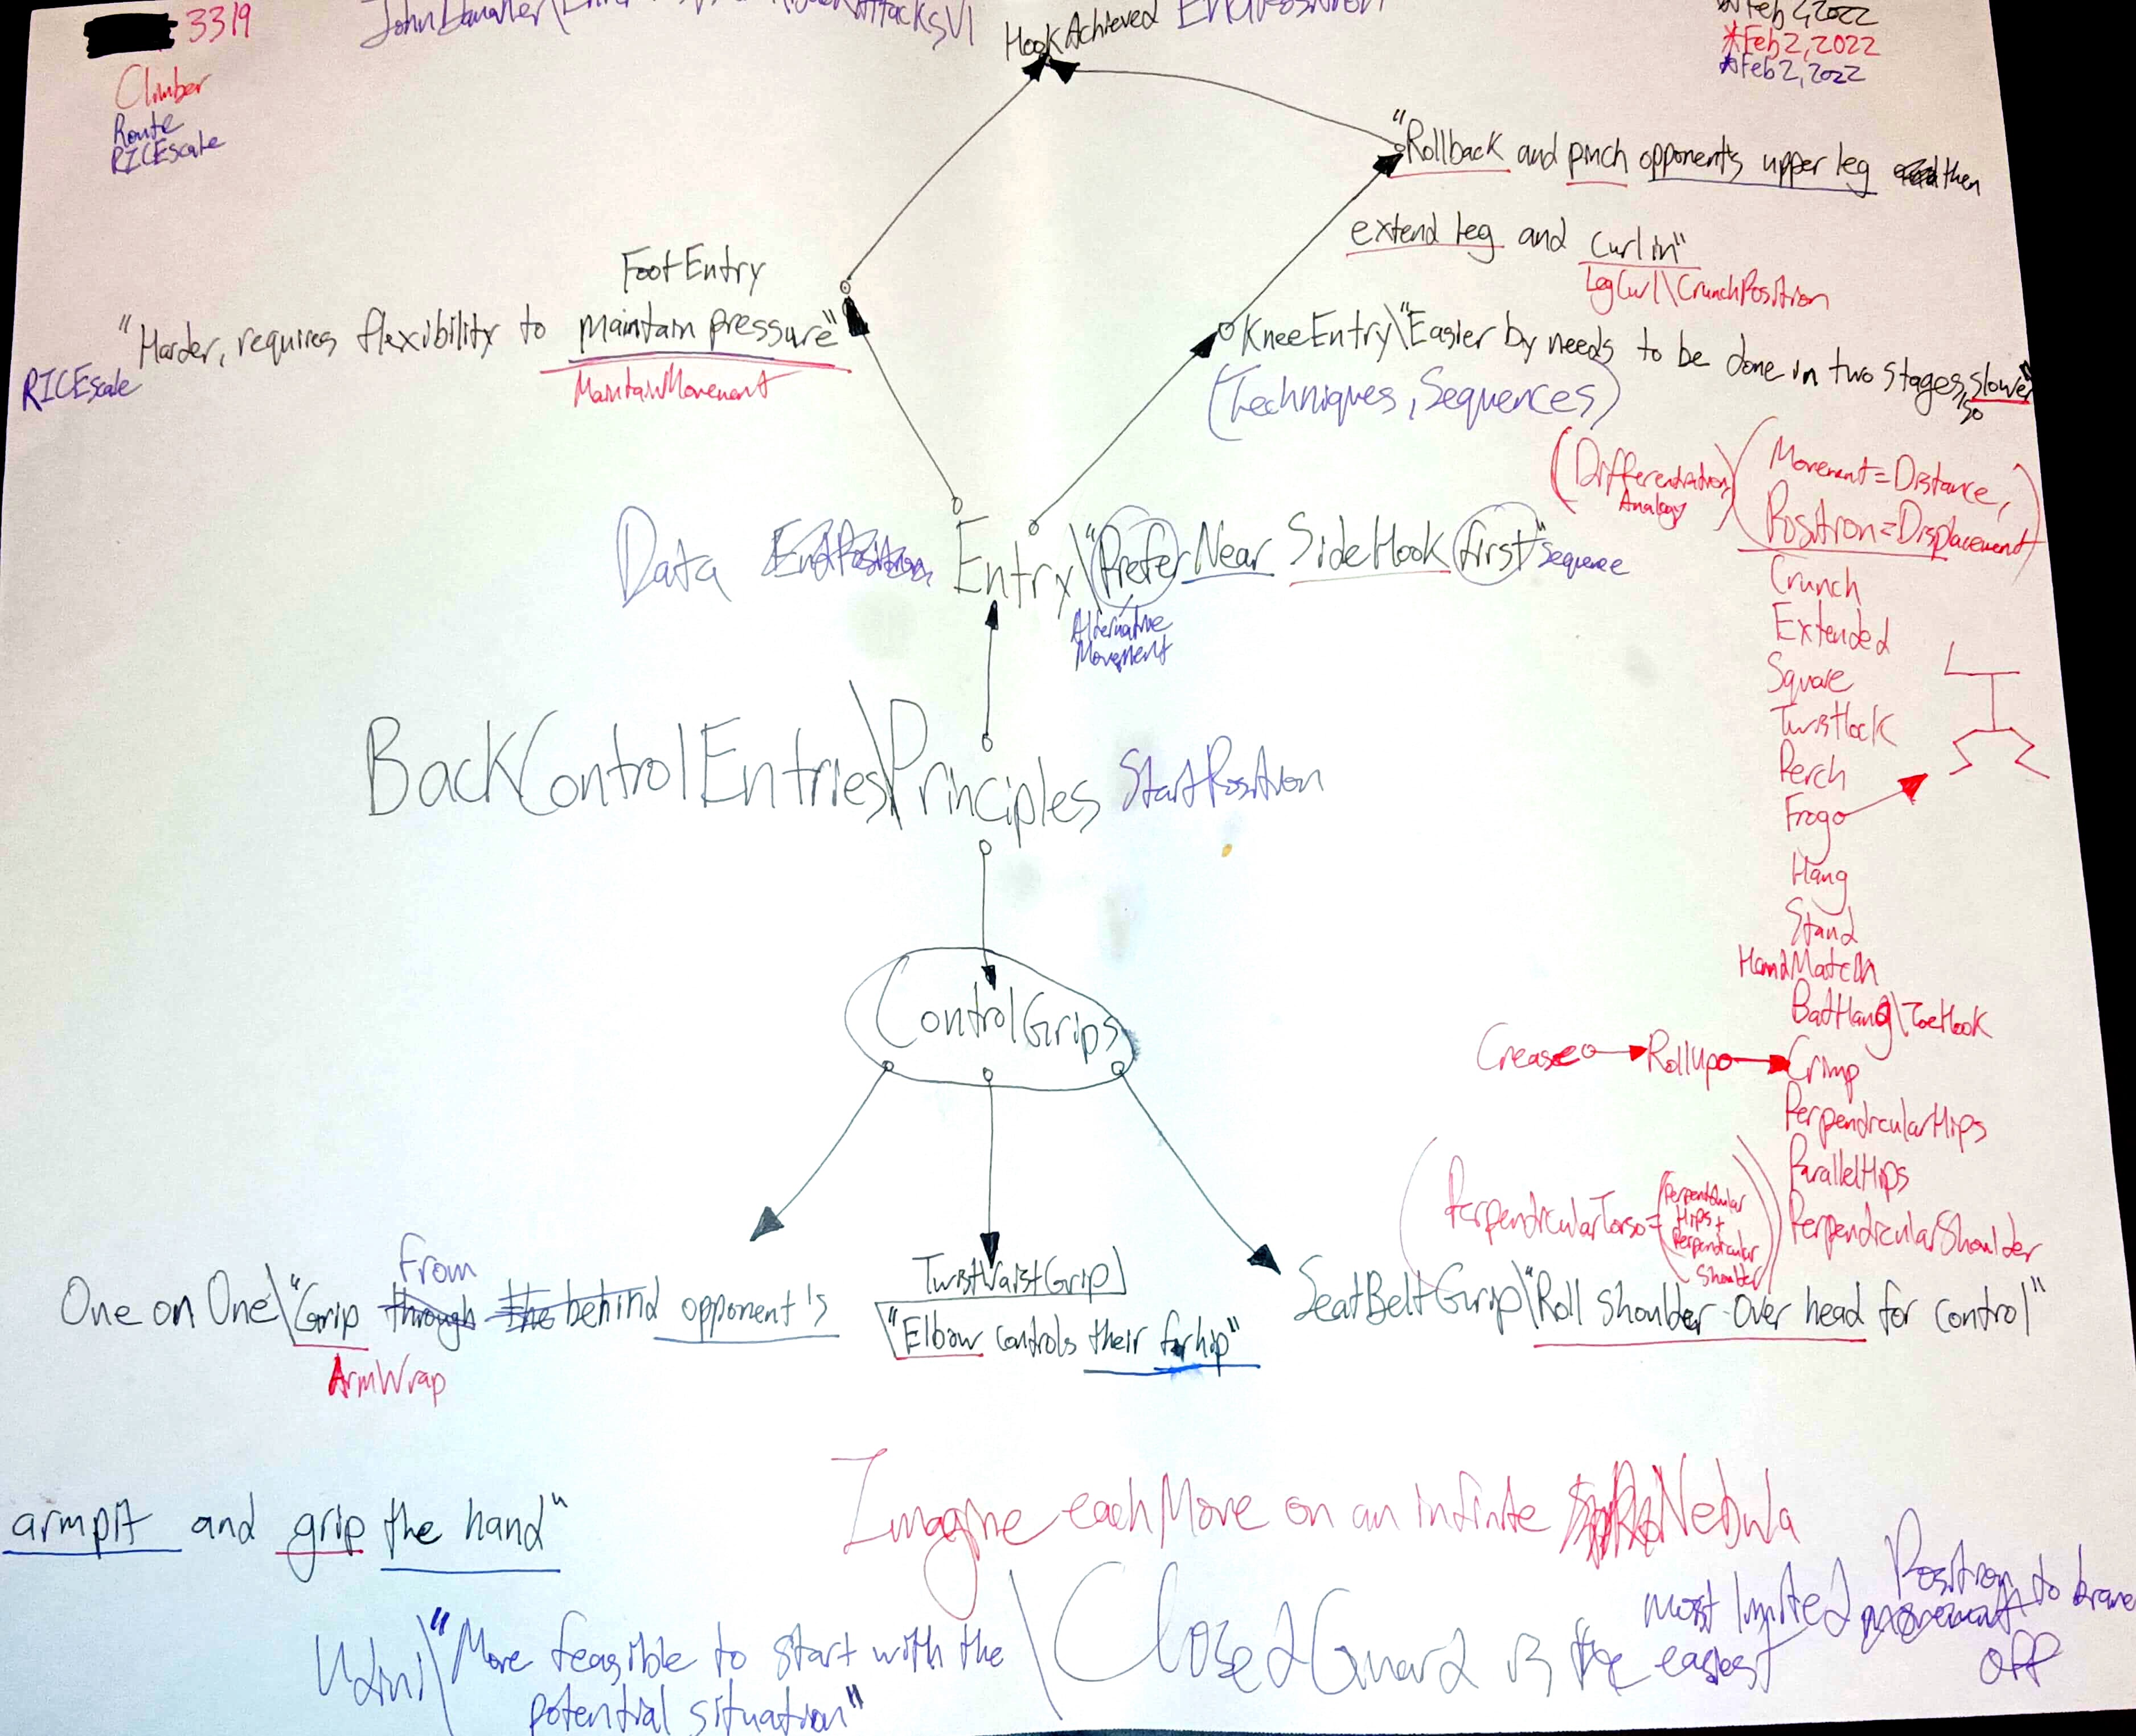 3319
HookAchieved
Feb 2, 2022
*Feb 2, 2022
*Feb 2, 2022
Climber
Route
RICEscale
"Rollback and pinch opponent's upper leg then
extend leg and curl in"
LegCurl\CrunchPosition
FootEntry
"Harder, requires flexibility to maintain pressure"
RICEscale
MaintainMovement
KneeEntry\"Easier by needs to be done in two stages, so slower"
(Techniques, Sequences)
(Differentiation Analogy)
(Movement=Distance,
Position=Displacement)
Data EndPosition Entry\"Prefer Near SideHook first" sequence
Alternative
Movement
Crunch
Extended
Square
TwistLock
Perch
Frog
Hang
Stand
HandMatch
BatHang\ToeHook
Crease Rollup Crimp
PerpendicularHips
ParallelHips
PerpendicularShoulder
(PerpendicularTorso=(Perpendicular
Hips+
Perpendicular
Shoulder))
BackControlEntries\Principles StartPosition
ControlGrips
One on One\"Grip from through the behind opponent's
ArmWrap
armpit and grip the hand"
TwistWaistGrip
\"Elbow controls their far hip"
SeatBeltGrip\"Roll shoulder over head for control"
Imagine each Move on an infinite Nebula
"More feasible to start with the
potential situation"
\ClosedGuard is the easiest
most limited Position movement to
off